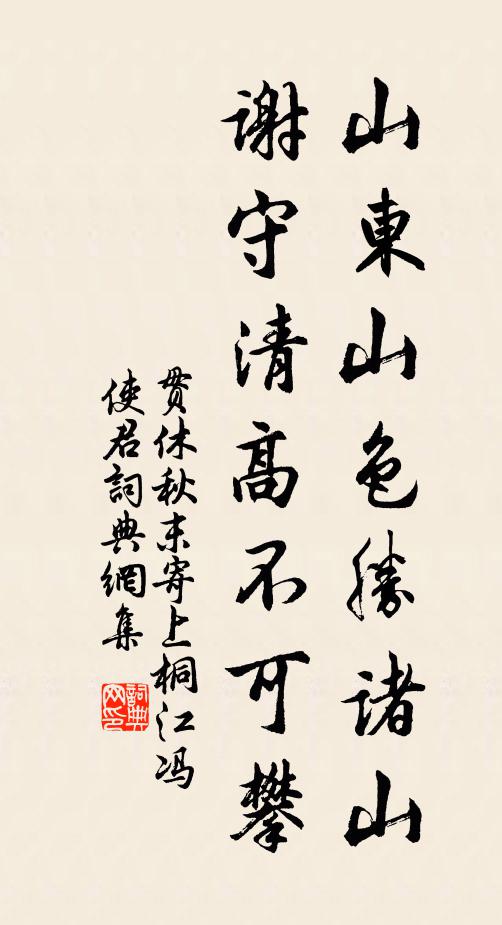 山東山色勝諸山
謝守清高不可攀
貫休秋末寄上桐江冯
使君詞典網集
詞典
网印